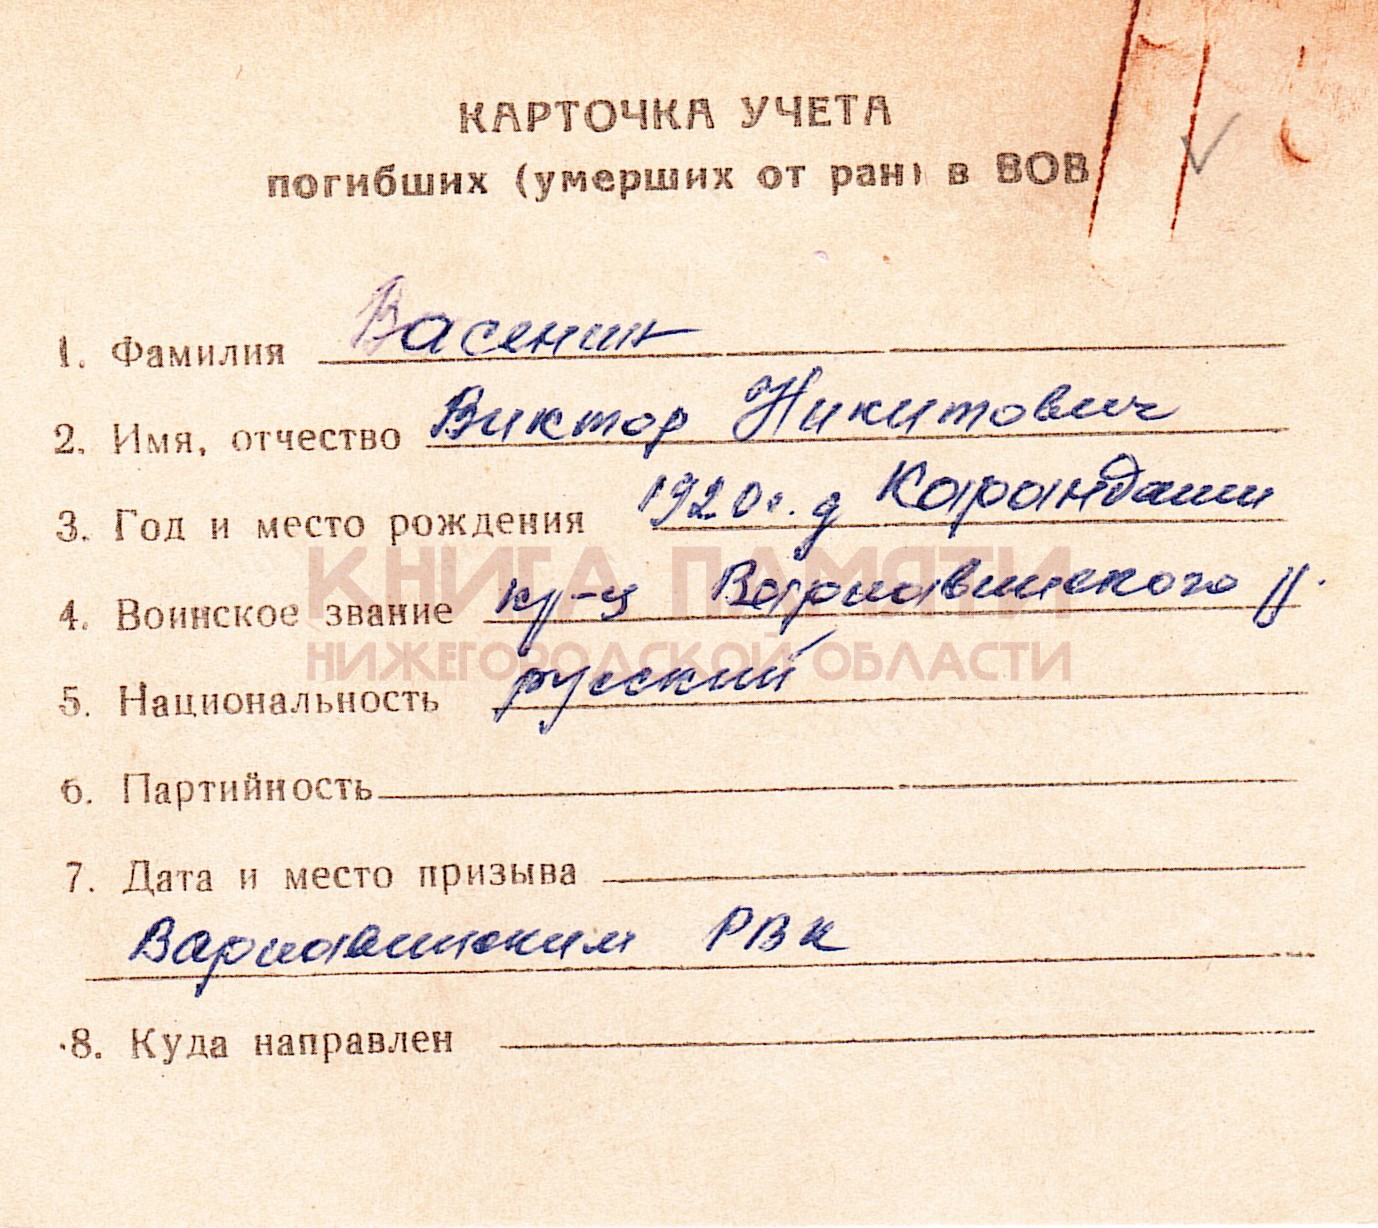 КАРТОЧКА УЧЕТА
погибших (умерших от ран) в ВОВ
1. Фамилия Васенин
2. Имя, отчество Виктор Никитович
3. Год и место рождения 1920г. д Карандаши
4. Воинское звание кр-ц Варнавинского р.
КНИГА ПАМЯТИ
НИЖЕГОРОДСКОЙ ОБЛАСТИ
5. Национальность русский
6. Партийность
7. Дата и место призыва
Варнавинским РВК
8. Куда направлен